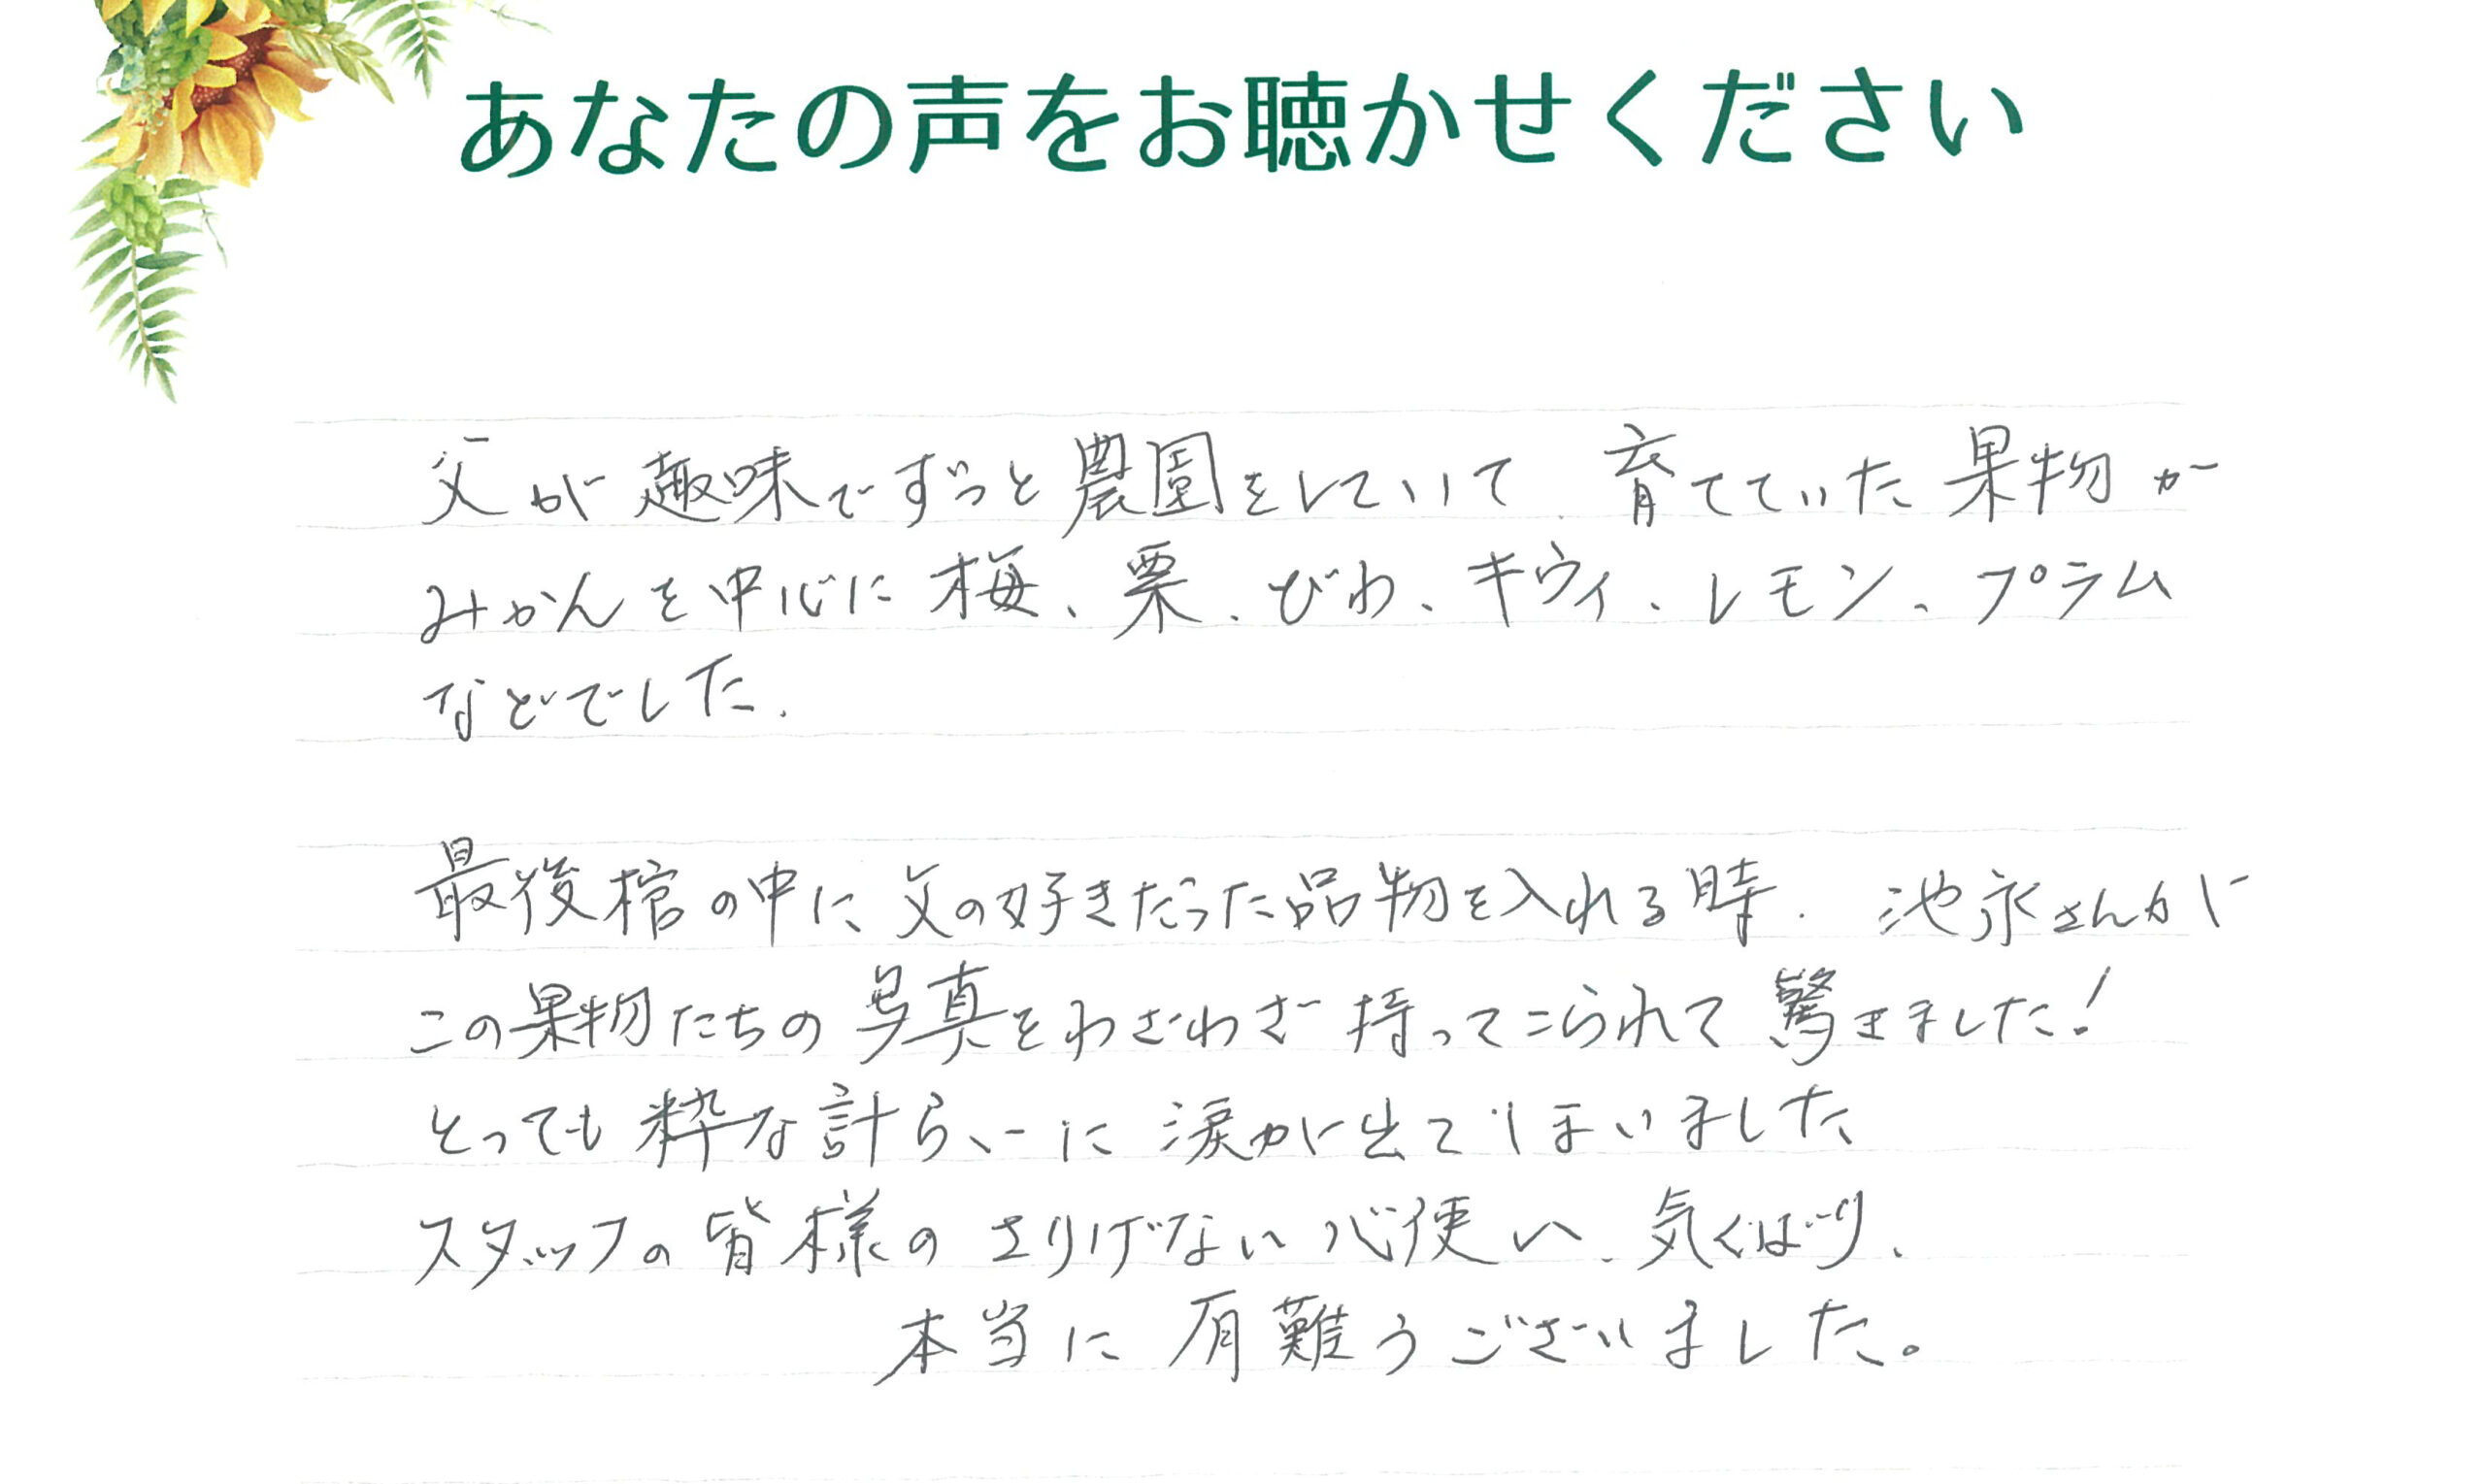 あなたの声をお聴かせください
父が趣味でずっと農園をしていて、育てていた果物が
みかんを中心に梅、栗、びわ、キウィ、レモン、プラム
などでした。
最後棺の中に、父の好きだった品物を入れる時、池永さんが
この果物たちの写真をわざわざ持ってこられて驚きました!
とっても粋な計らいに涙が出てしまいました
スタッフの皆様のさりげない心使い、気くばり、
本当に有難うございました。